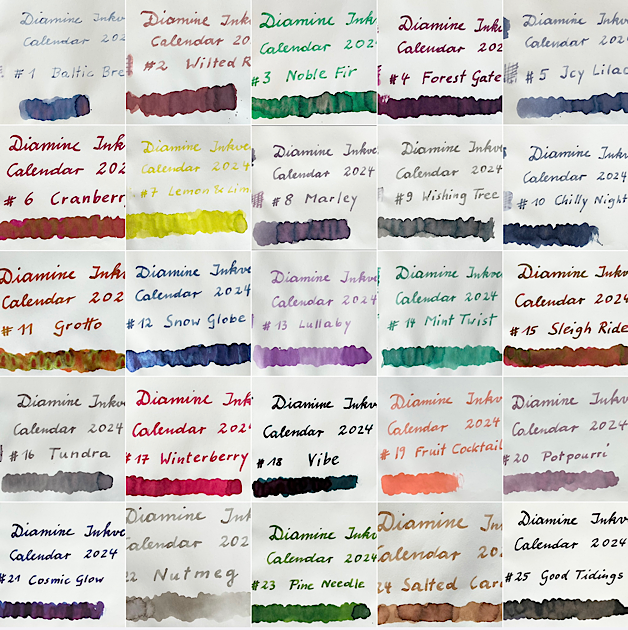 Diamine Ink
Calendar 202
#1 Baltic Bre
Diamine Ink
Calendar 20
#2 Wilted R
Diamine Inkv
Calendar 2024
#3 Noble Fir
Diamine Ink
Calendar 202
#4 Forest Gate
Diamine Inkv
Calendar 2024
#5 Icy Lilac
Diamine Ink
Calendar 202
#6 Cranberry
Diamine Inkve
Calendar 2024
#7 Lemon & Lim
Diamine Inkve
Calendar 2024
#8 Marley
Diamine Inkve
Calendar 2024
#9 Wishing Tree
Diamine Inkv
Calendar 2024
#10 Chilly Night
Diamine Ink
Calendar 202
#11 Grotto
Diamine Inkve
Calendar 2024
#12 Snow Globe
Diamine Inkve
Calendar 2024
#13 Lullaby
Diamine Inkve
Calendar 2024
#14 Mint Twist
Diamine Inkv
Calendar 2024
#15 Sleigh Ride
Diamine Inkv
Calendar 2024
#16 Tundra
Diamine Ink
Calendar 2024
#17 Winterberry
Diamine Inkv
Calendar 2024
#18 Vibe
Diamine Inkv
Calendar 2024
#19 Fruit Cocktail
Diamine Inkv
Calendar 2024
#20 Potpourri
Diamine Inkve
Calendar 2024
#21 Cosmic Glow
Diamine Ink
Calendar 202
22 Nutmeg
Diamine Inkv
Calendar 2024
#23 Pine Needle
Diamine In
Calendar 20
24 Salted Car
Diamine Inkv
Calendar 2024
#25 Good Tidings